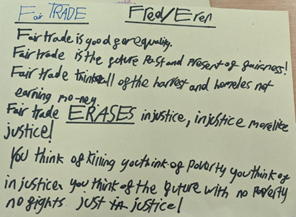 Fair TRADE Fred/Eren
Fair trade is good for equality.
Fair trade is the future Past and Present of fairness!
Fair trade thinks all of the harvest and homeles not
earning money.
Fair trade ERASES injustice, injustice more like
justice!
You think of killing you think of poverty you think of
injustice you think of the future with no poverty
no fights just justice!